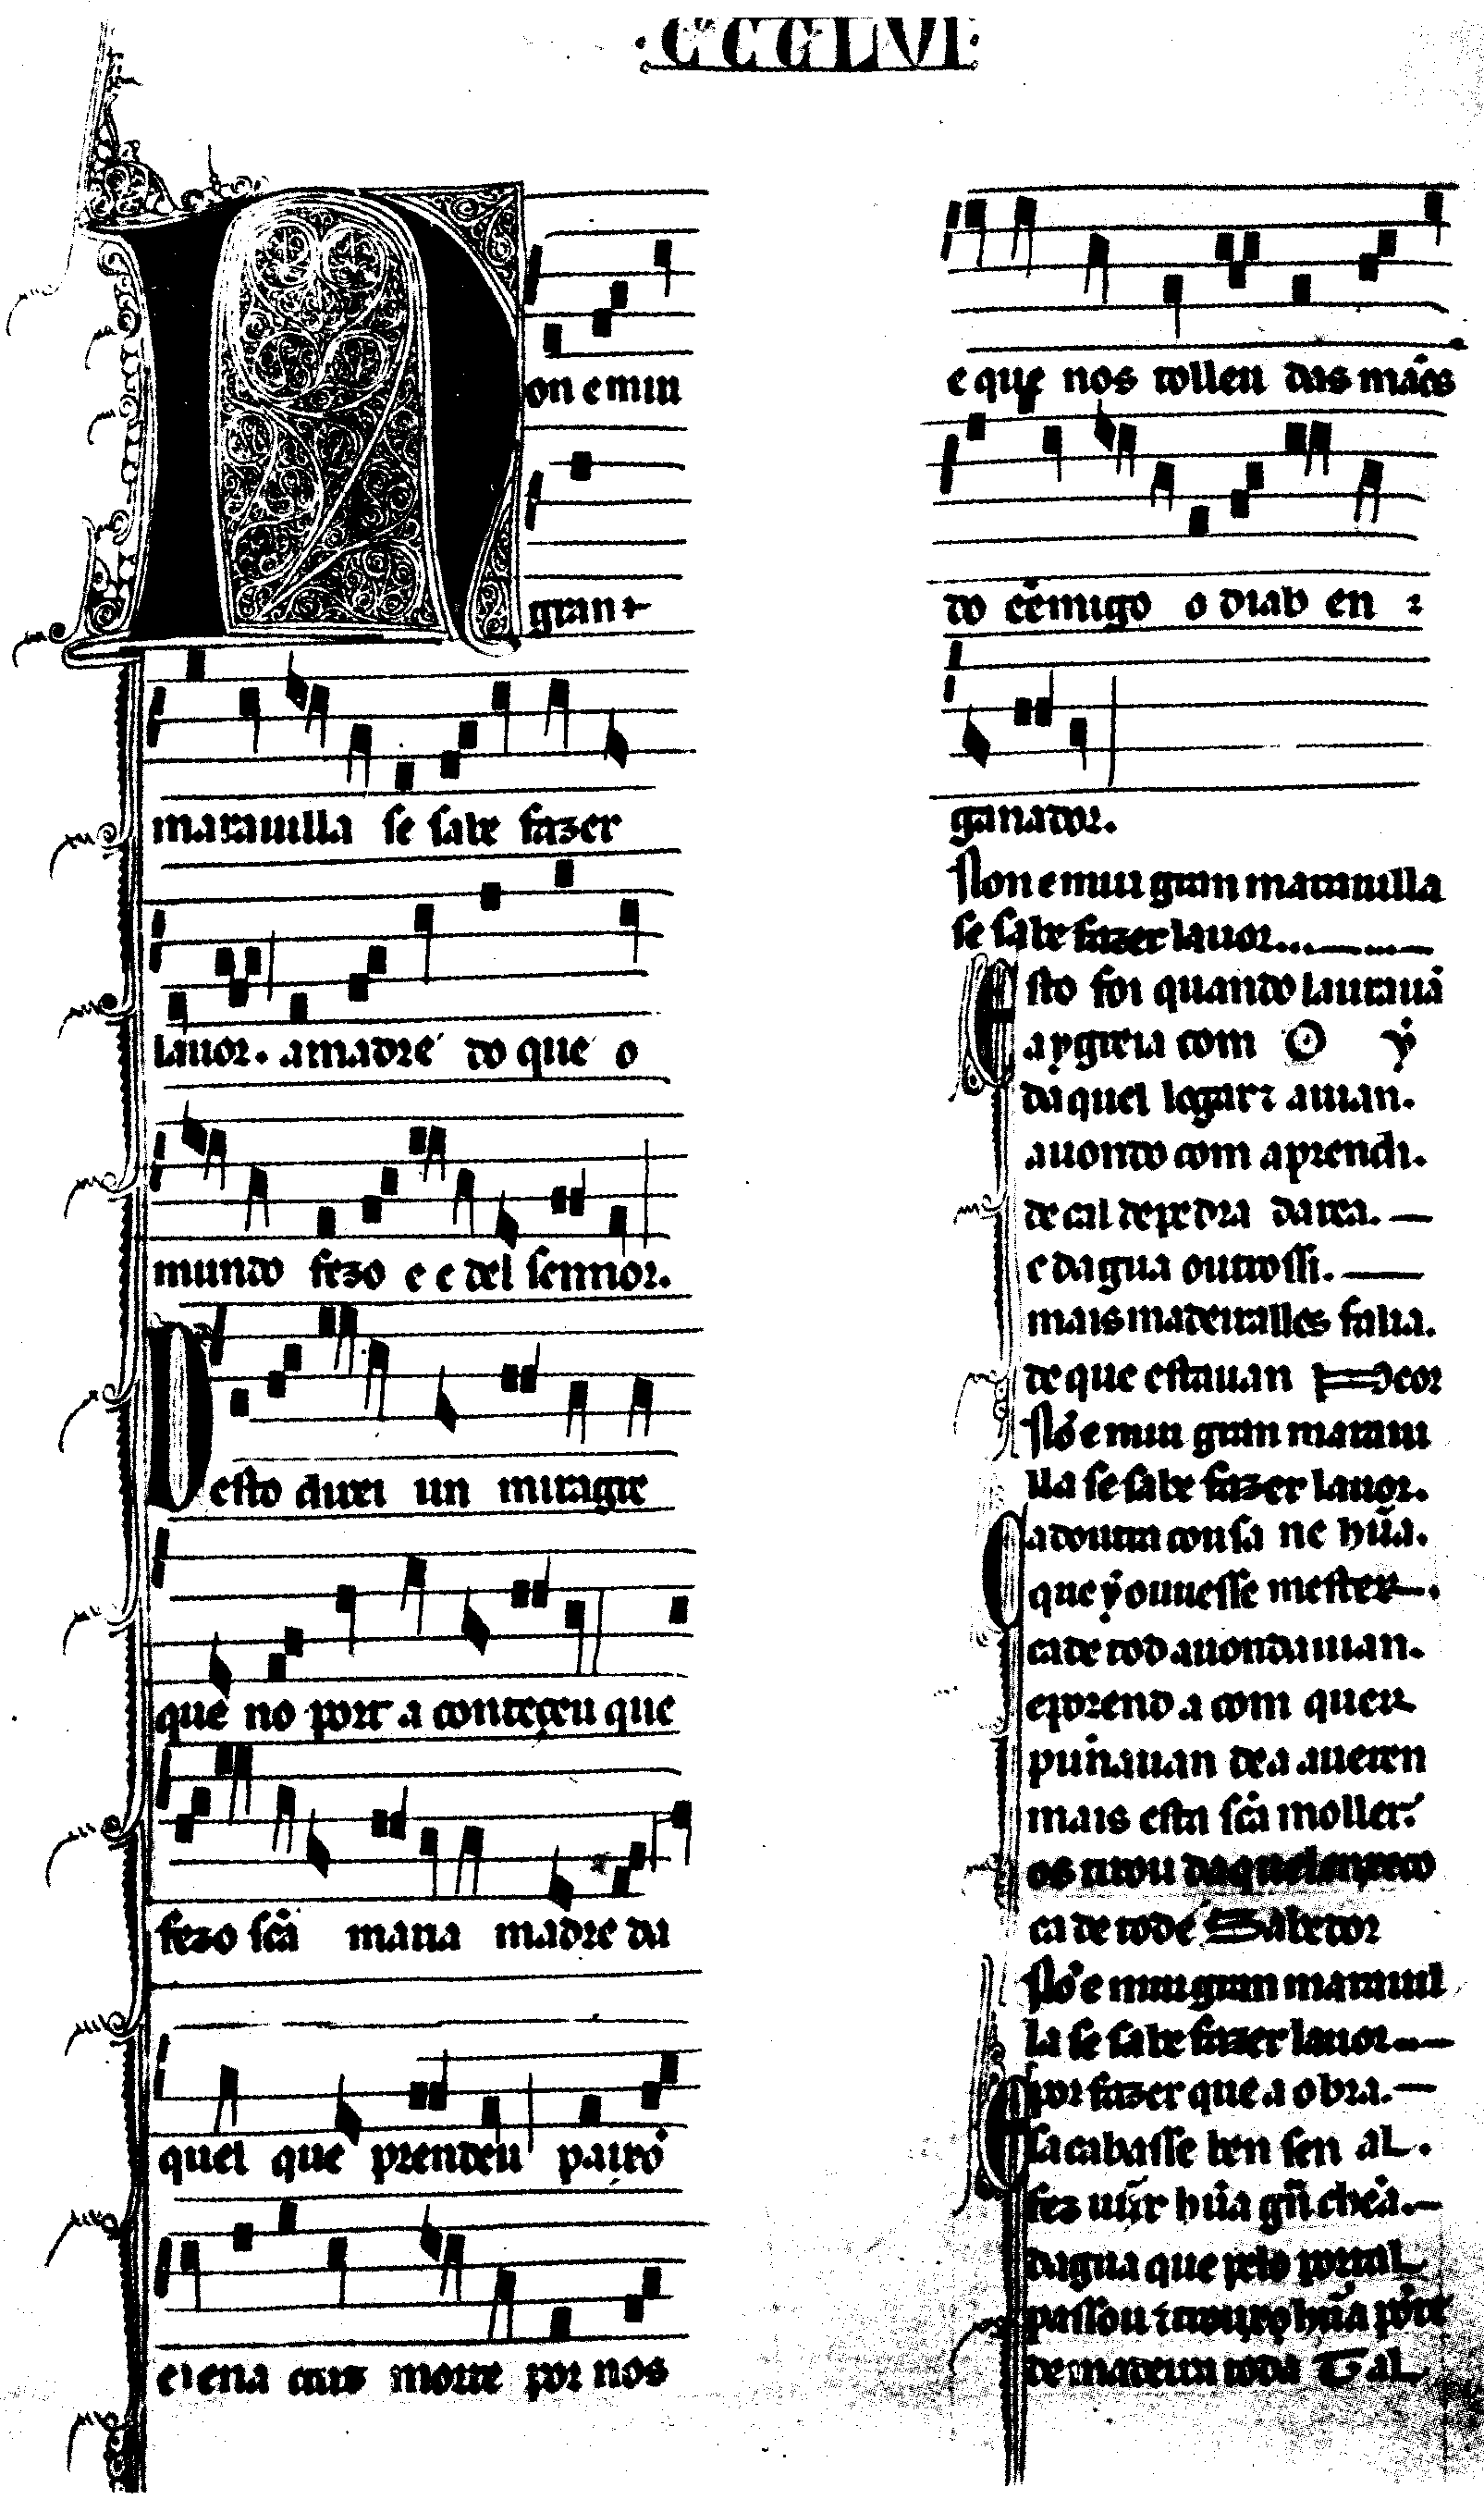 ·CCCLVI·
Non e mui
gran
marauilla se sabe fazer
lauor. a madre do que o
mundo fezo e e del sennor.
Desto direi un miragre
que no port a conteçeu que
fezo scã maria madre da
quel que prendeu paixõ
e ena cruz morte por nos
e que nos tollen das mãos
do ẽemigo o diab en
ganador.
Non e mui gran marauilla
se sabe fazer lauor...
Esto foi quando laurauã
a ygreia com ey
da quel logar ⁊ auian.
auondo com aprendi.
de cal de pedra darea.
e dagua outrossi.
mais madeira lles falia.
de que estauan peor
Nõ e mui gran maraui
lla se sabe fazer lauor.
Ca doutra cousa ne hũa.
que y ouuesse mester.
ca de tod auondauan.
e porend a com quer
punnauan de a aueren
mais esta scã moller.
os tirou daquel
ca de tod e Sabedor
Nõ e mui gran marauil
la se sabe fazer lauor
E por fazer que a obra.
sacabasse ben sen al.
fez uĩir hũa grã chẽa.
dagua que pelo portal
passou ⁊ trouxo hũa põte
de madeira toda Tal